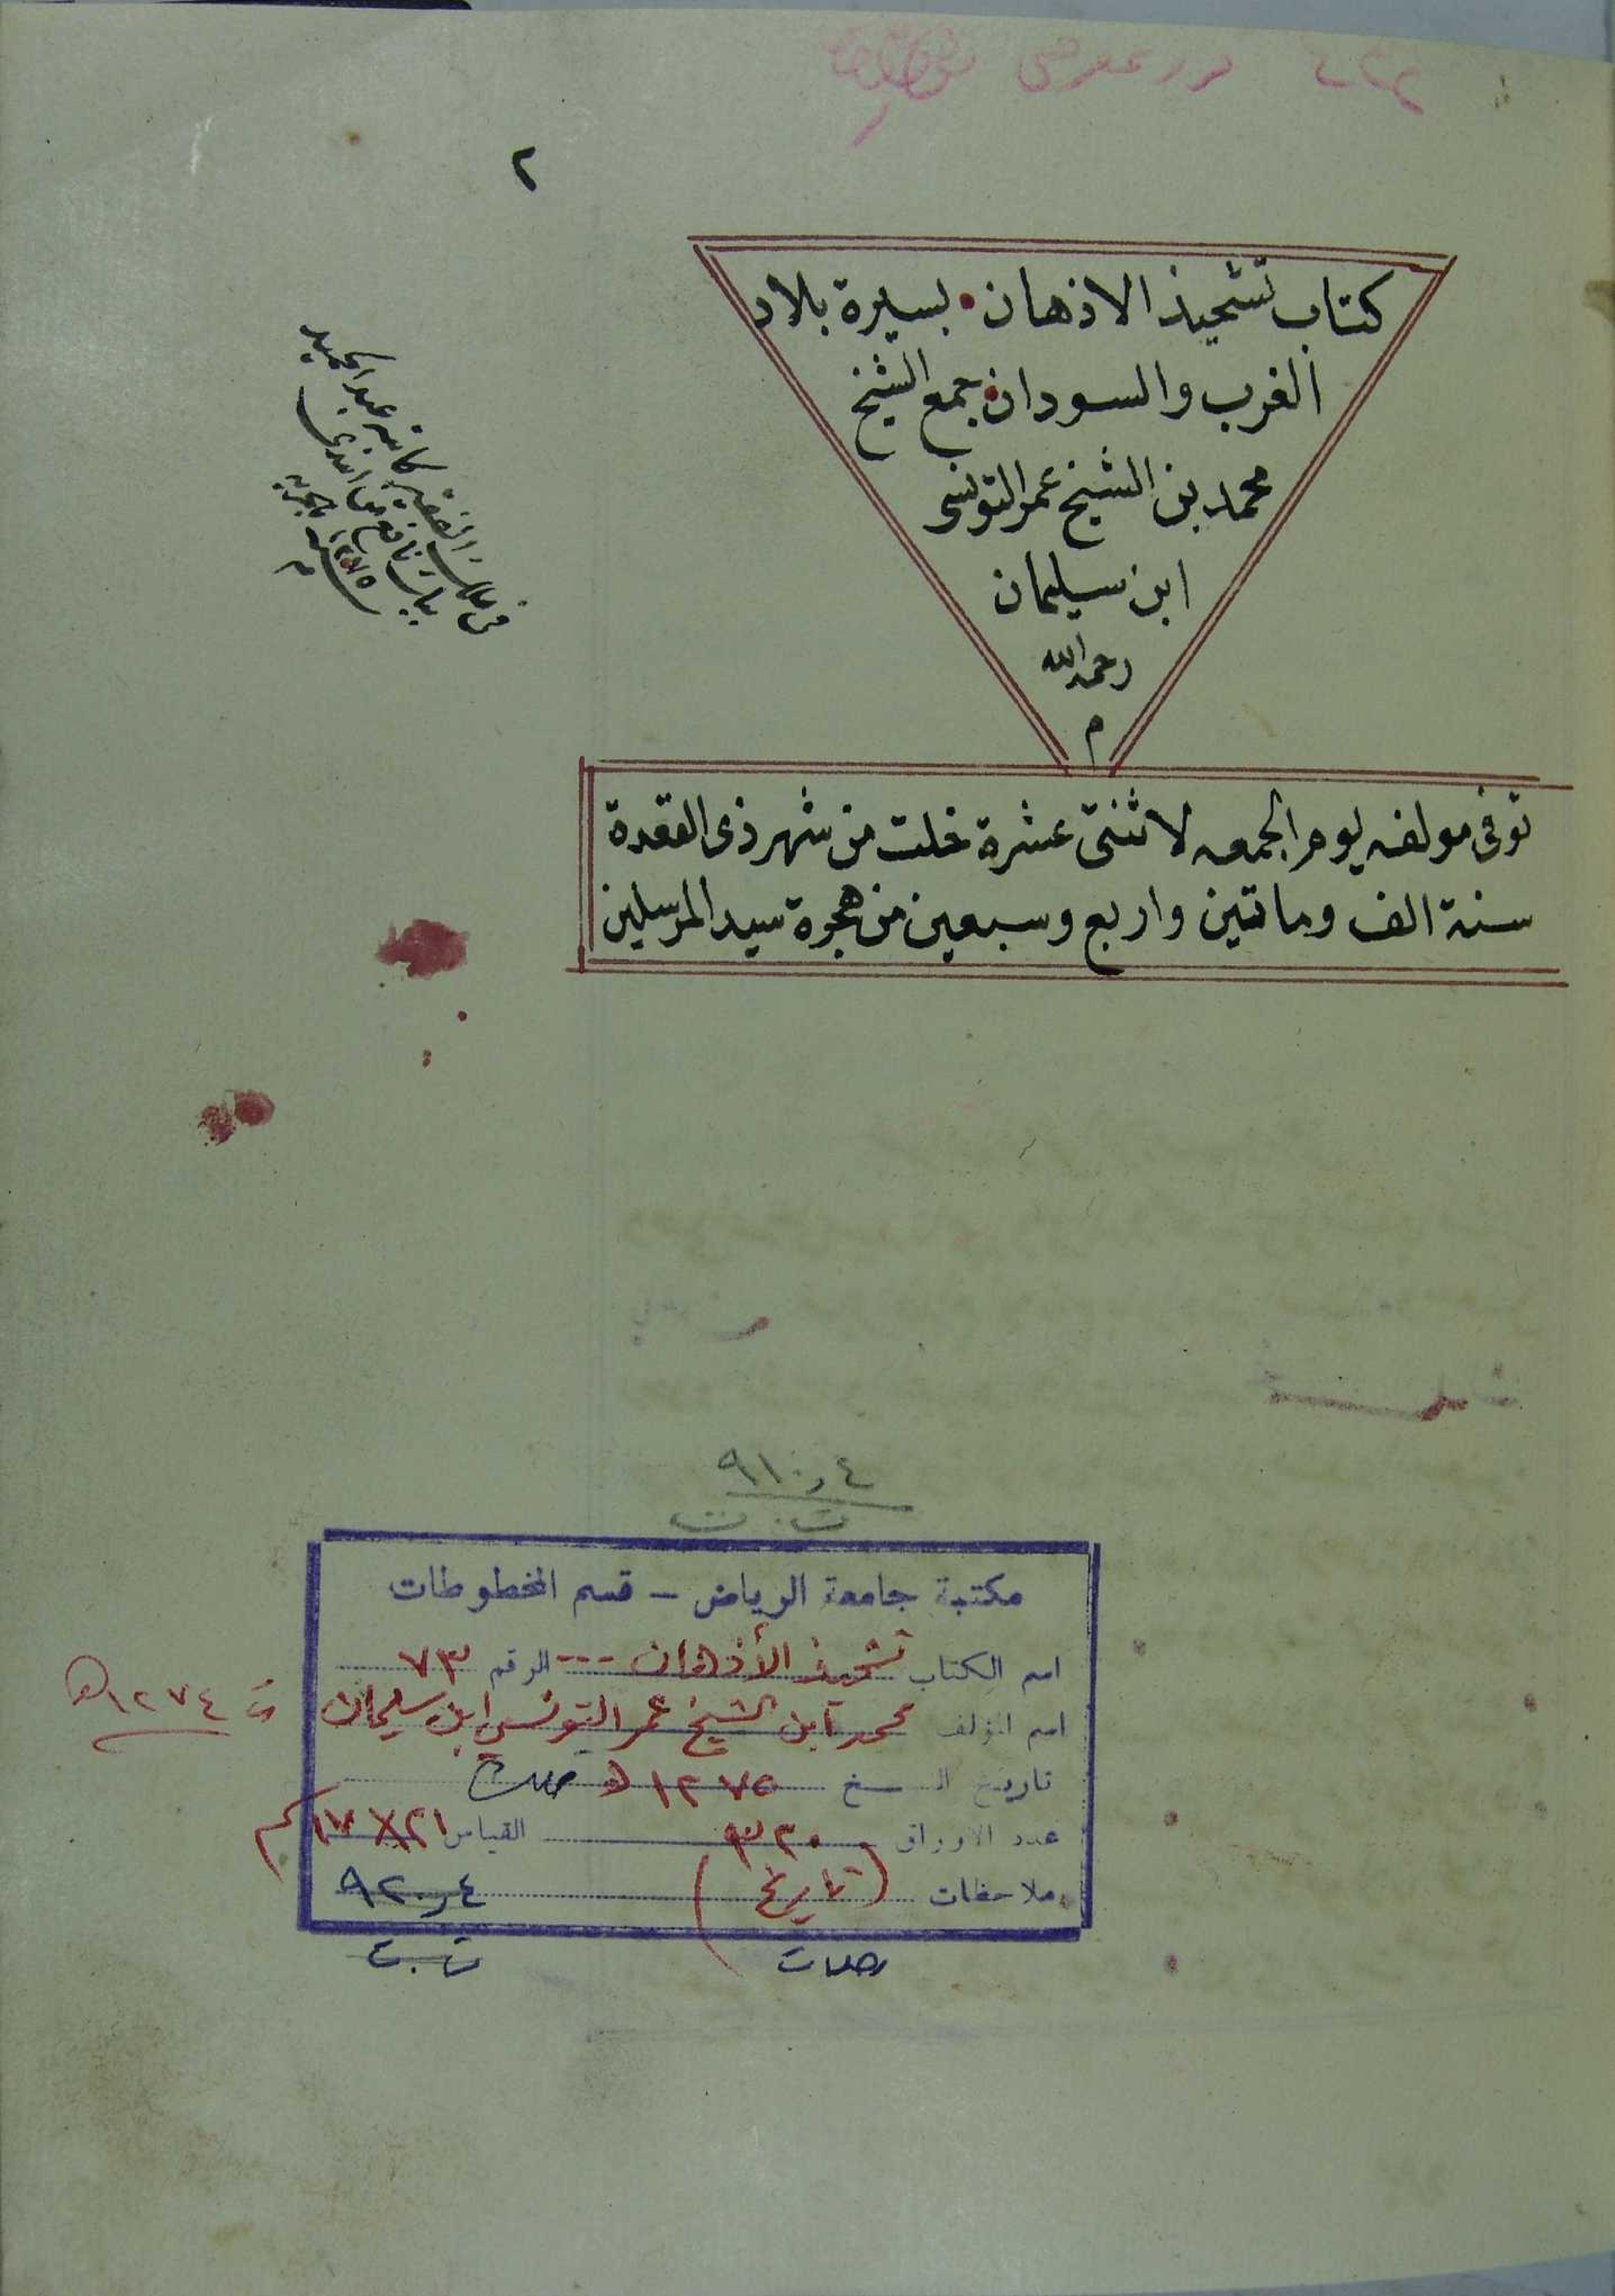 ٢
كتاب تشحيذ الاذهان • بسيرة بلاد
الغرب والسودان • جمع الشيخ
محمد بن الشيخ عمر التونسى
ابن سليمان
رحمه الله
م
توفى مولفه يوم الجمعه لاثنتى عشرة خلت من شهر ذى القعدة
سنة الف وماتتين واربع وسبعين من هجرة سيد المرسلين
من ملك الفقير كاتبه عبد الحميد
بك نافع افندى
سنة ١٢٧٥ هجريه
م
٩١٠٫٤
ت . ت
مكتبة جامعة الرياض – قسم المخطوطات
اسم الكتاب تشحيذ الأذهان --- الرقم ٧٣
اسم المؤلف محمد ابن الشيخ عمر التونسي ابن سليمان ت ١٢٧٤ هـ
تاريخ النسخ ١٢٧٥ هـ
عدد الاوراق ٣٢٠ القياس ٢١ × ١٧ سم
ملاحظات (تاريخ) ٩٢٠٫٤
رحلات ت . ت